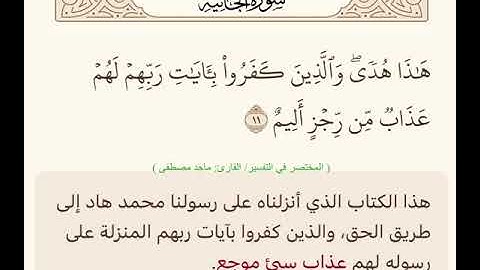 سورة الجاثية
هَٰذَا هُدٗىۖ وَٱلَّذِينَ كَفَرُواْ بِـَٔايَٰتِ رَبِّهِمۡ لَهُمۡ
عَذَابٞ مِّن رِّجۡزٍ أَلِيمٌ ١١
( المختصر في التفسير/ القارئ: ماجد مصطفى )
هذا الكتاب الذي أنزلناه على رسولنا محمد هاد إلى
طريق الحق، والذين كفروا بآيات ربهم المنزلة على
رسوله لهم عذاب سيئ موجع.